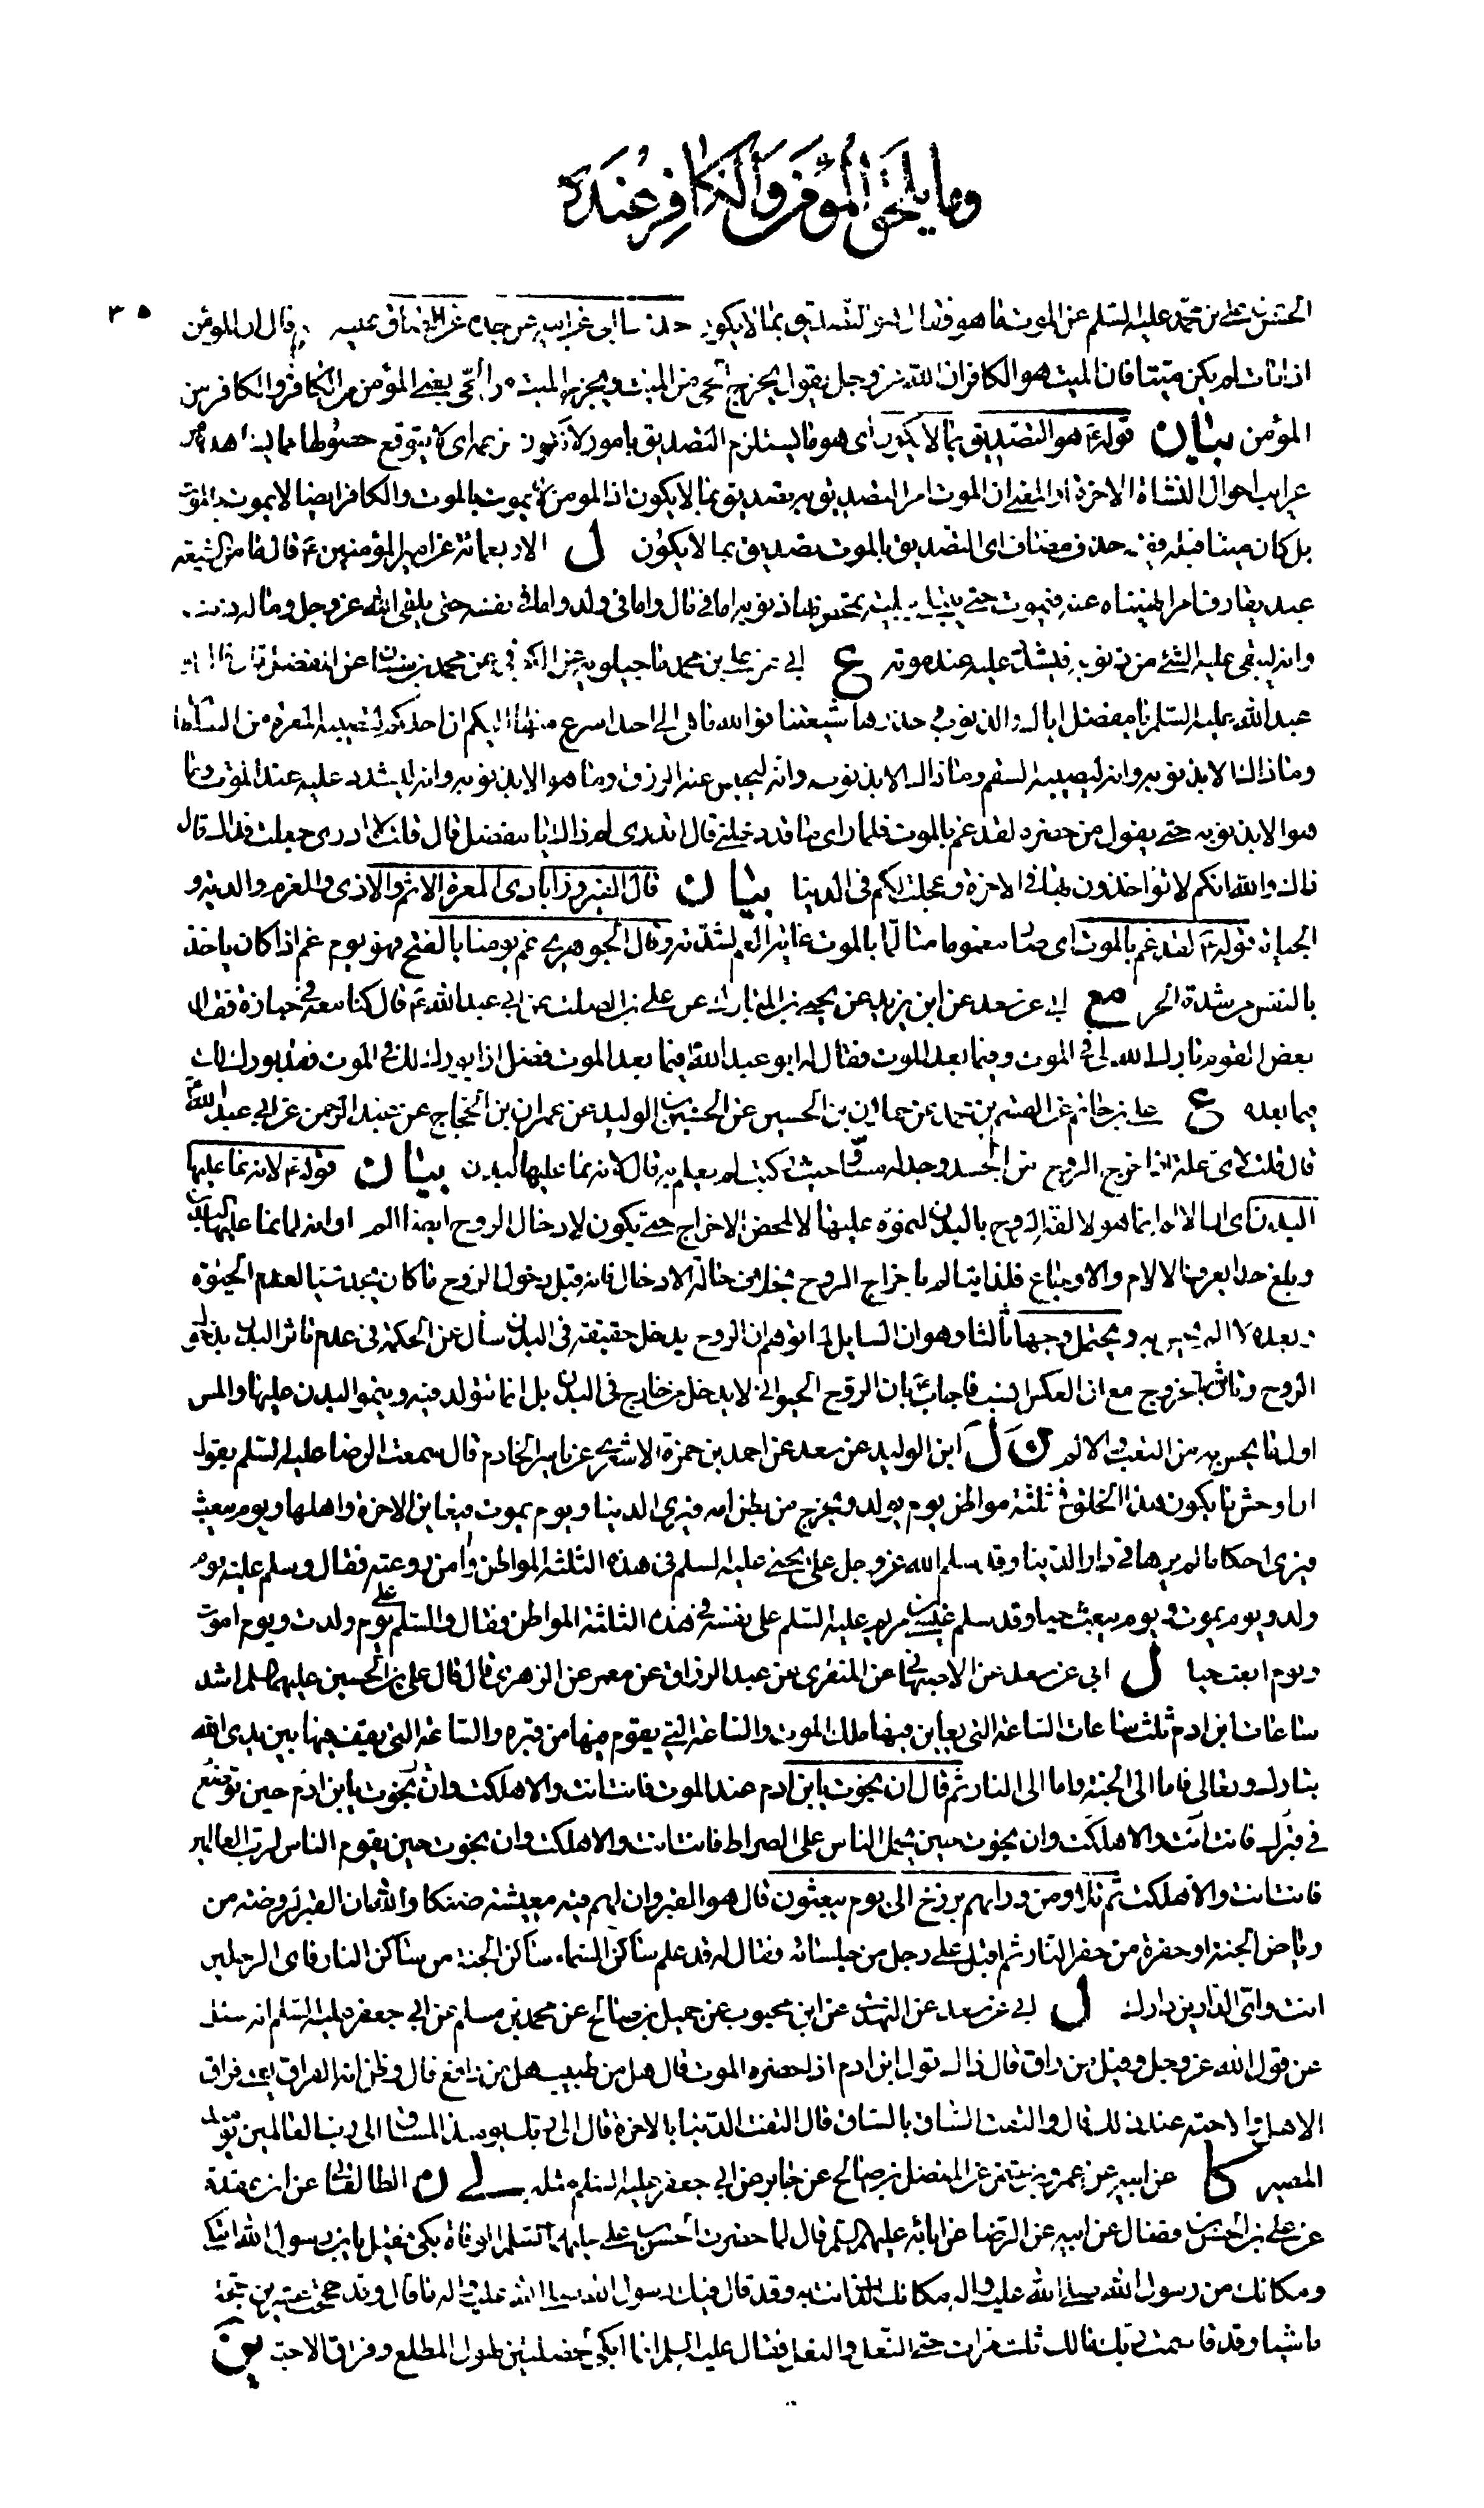 وما يلحق المؤمن والكافر عنده
٣٥
الحسن بن علي بن محمد عليه السلم عن الموت ما هو فقال هو التصديق بما لا يكون حدثنا ابي عن ابيه عن جده عن الصادق عليه قال ان المؤمن
اذا مات لم يكن ميتا فان الميت هو الكافر ان الله عز وجل يقول يخرج الحي من الميت ويخرج الميت من الحي يعني المؤمن من الكافر والكافر من
المؤمن بيان قوله ع هو التصديق بما لا يكون اى هو ما يستلزم التصديق بامور لا تكون اى لا يتوقع حصولها مما يشاهده من
غرايب احوال النشاة الاخرة او المعنى ان الموت امر التصديق به تصديق بما لا يكون اذ المومن لا يموت بالموت والكافر ايضا لا يموت بالموت
بل كان ميتا قبله ففيه حذف مضاف اى التصديق بالموت تصديق بما لا يكون ل الاربعمائة عن امير المؤمنين ع قال ما من الشيعة
عبد يقارف امرا نهيناه عنه فيموت حتى يبتلى ببلية تمحص بها ذنوبه اما في مال واما في ولد واما في نفسه حتى يلقى الله عز وجل وما له ذنب
وانه ليبقى عليه الشئ من ذنوبه فيشدد عليه عند موته ع ابي عن علي بن محمد ماجيلويه عن الكوفي عن محمد بن سنان عن المفضل قال قال ابو
عبد الله عليه السلم يا مفضل اياك والذنوب وحذرها شيعتنا فو الله ما هي الى احد اسرع منها اليكم ان احدكم لتصيبه المعرة من السلطان
وما ذاك الا بذنوبه وانه ليصيبه السقم وما ذاك الا بذنوبه وانه ليحبس عنه الرزق وما هو الا بذنوبه وانه ليشدد عليه عند الموت وما
هو الا بذنوبه حتى يقول من حضره لقد غم بالموت فلما راى ما قد دخلني قال اتدرى لم ذاك يا مفضل قال قلت لا ادرى جعلت فداك قال
ذاك والله انكم لا تؤاخذون بها في الاخرة وعجلت لكم في الدنيا بيان قال الفيروزابادى المعرة الاثم والاذى والغرم والدية و
الجناية قوله ع لقد غم بالموت اى صار مغموما متالما بالموت غاية الغم لشدته وقال الجوهري غم يومنا بالفتح فهو يوم غم اذا كان ياخذ
بالنفس من شدة الحر مع ابي عن سعد عن ابن يزيد عن يحيى بن المبارك عن علي بن الصلت عن ابي عبد الله ع قال كنا معه في جنازة فقال
بعض القوم بارك الله لى في الموت وفيما بعد الموت فقال له ابو عبد الله فيما بعد الموت فضل اذا بورك لك في الموت فقد بورك لك
فيما بعده ع علي بن حاتم عن القسم بن محمد عن حمدان بن الحسين عن الحسين بن الوليد عن عمران بن الحجاج عن عبد الرحمن عن ابي عبد الله ع
قال قلت لاى علة اذا خرج الروح من الجسد وجد له مسا وحيث ركبت لم يعلم به قال لانه نما عليها البدن بيان قوله ع لانه نما عليها
البدن اى ان الالم انما هو لالفة الروح بالبدن لنموه عليها لا لمحض الاخراج حتى يكون لادخال الروح ايضا الم او انه لما نما عليها البدن
وبلغ حدا يعرف الالام والاوجاع فلذا يتالم باخراج الروح بخلاف حالة الادخال فانه قبل دخول الروح ما كان يجد شيئا لعدم الحيوة
وبعده لا الم يحس به ويحتمل وجها ثالثا وهو ان السايل لما توهم ان الروح يدخل حقيقة في البدن سأل عن الحكمة في عدم تاثر البدن بدخول
الروح وتاثره بالخروج مع ان العكس انسب فاجاب ع بان الروح الحيواني لا يدخل من خارج في البدن بل انما تتولد فيه وينمو البدن عليها والمس
اول ما يحس به من التعب والالم ن ل ابن الوليد عن سعد عن احمد بن حمزة الاشعري عن ياسر الخادم قال سمعت الرضا عليه السلم يقول
ان اوحش ما يكون هذا الخلق في ثلثة مواطن يوم يولد ويخرج من بطن امه فيرى الدنيا ويوم يموت فيعاين الاخرة واهلها ويوم يبعث
فيرى احكاما لم يرها في دار الدنيا وقد سلم الله عز وجل على يحيى عليه السلم في هذه الثلثة المواطن وامن روعته فقال وسلم عليه يوم
ولد ويوم يموت ويوم يبعث حيا وقد سلم عيسى بن مريم عليه السلم على نفسه في هذه الثلثة المواطن فقال والسلم علي يوم ولدت ويوم اموت
ويوم ابعث حيا ل ابي عن سعد عن الاصبهاني عن المنقري عن عبد الرزاق عن معمر عن الزهري قال قال علي بن الحسين عليهما السلم اشد
ساعات ابن ادم ثلث ساعات الساعة التي يعاين فيها ملك الموت والساعة التي يقوم فيها من قبره والساعة التي يقف فيها بين يدى الله
تبارك وتعالى فاما الى الجنة واما الى النار ثم قال ان نجوت يا ابن ادم عند الموت فانت انت والا هلكت وان نجوت يا ابن ادم حين توضع
في قبرك فانت انت والا هلكت وان نجوت حين يحمل الناس على الصراط فانت انت والا هلكت وان نجوت حين يقوم الناس لرب العالمين
فانت انت والا هلكت ثم تلا ومن ورائهم برزخ الى يوم يبعثون قال هو القبر وان لهم فيه معيشة ضنكا والله ان القبر لروضة من
رياض الجنة او حفرة من حفر النار ثم اقبل على رجل من جلسائه فقال له قد علم ساكن السماء ساكن الجنة من ساكن النار فاى الرجلين
انت واى الدارين دارك ل ابي عن سعد عن النهدي عن ابن محبوب عن جميل بن صالح عن محمد بن مسلم عن ابي جعفر عليه السلم انه سئل
عن قول الله عز وجل وقيل من راق قال ذاك قول ابن ادم اذا حضره الموت قال هل من طبيب هل من دافع قال وظن انه الفراق يعني فراق
الاهل والاحبة عند ذلك قال والتفت الساق بالساق قال التفت الدنيا بالاخرة قال الى ربك يومئذ المساق الى رب العالمين يومئذ
المصير كا عن ابيه عن عمرو بن عثمن عن المفضل بن صالح عن جابر عن ابي جعفر عليه السلم مثله لي ن الطالقاني عن ابن عقدة
عن علي بن الحسن بن فضال عن ابيه عن الرضا عن ابائه عليهم السلم قال لما حضرت الحسن بن علي عليهما السلم الوفاة بكى فقيل يا ابن رسول الله اتبكي
ومكانك من رسول الله صلى الله عليه واله مكانك الذي انت به وقد قال فيك رسول الله صلى الله عليه واله ما قال وقد حججت عشرين حجة
ماشيا وقد قاسمت ربك مالك ثلث مرات حتى النعل والنعل فقال عليه السلم انما ابكي لخصلتين لهول المطلع وفراق الاحبة ين